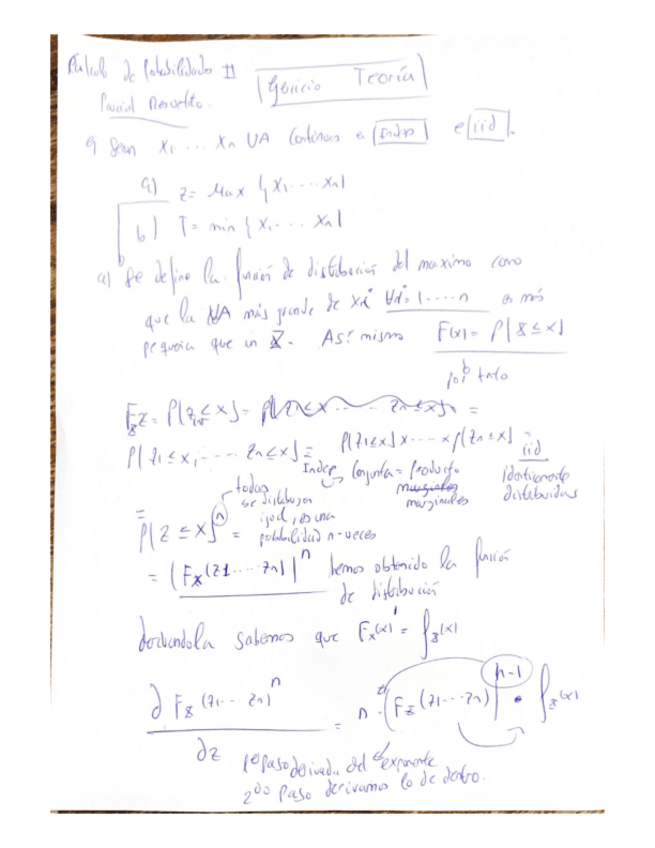 Cálculo de Probabilidades II
Ejercicio Teoría
Parcial Resuelto.
Sean X1 .... Xn VA continuas e iid.
a) Z = Max { X1 .... Xn }
b) T = min { X1 .... Xn }
a) Se define la función de distribución del maximo como
que la VA más grande de Xi ∀i = 1 ..... n es más
pequeña que un Z. Así mismo F(x) = P[Z ≤ x]
por tanto
= P[Z ≤ x] =
P[Z1 ≤ x, .... Zn ≤ x] = P[Z1 ≤ x] x .... x P[Zn ≤ x] =
iid
Indep Conjunta = Producto
marginales
Identicamente
distribuidas
todas
se distribuyen
igual, es una
probabilidad n-veces
= P[Z ≤ x]^n =
= (Fx(Z1 .... Zn))^n hemos obtenido la función
de distribución
derivandola sabemos que Fx(x)' = fz(x)
∂ Fz (Z1 ... Zn)^n
∂z
= n · (Fz (Z1 ... Zn))^n-1 · fz(x)
1º paso derivada del exponente
2do Paso derivamos lo de dentro.